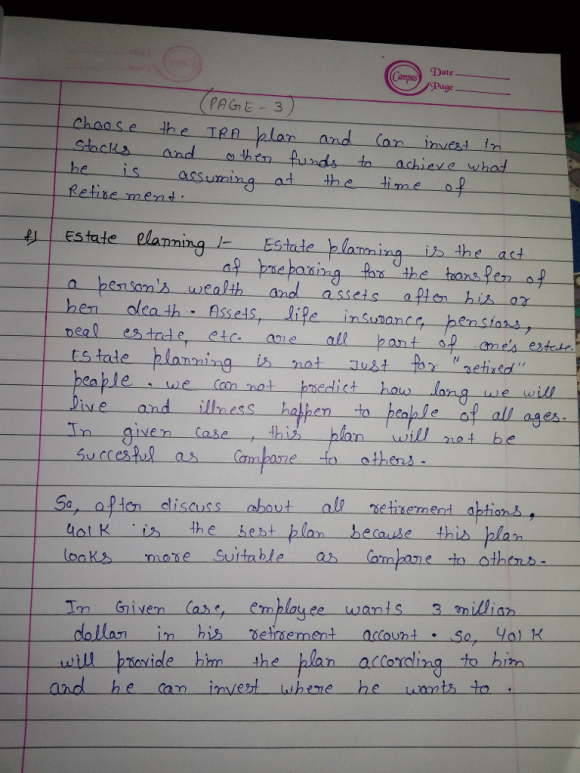 Campus
Date
Page
(PAGE - 3)
Choose the IRA plan and can invest in
Stocks and other funds to achieve what
he is assuming at the time of
Retirement.
f) Estate Planning :- Estate planning is the act
of preparing for the transfer of
a person's wealth and assets after his or
her death. Assets, life insurance, pensions,
real estate, etc. are all part of one's estate.
Estate planning is not Just for "retired"
people. we can not predict how long we will
live and illness happen to people of all ages.
In given case, this plan will not be
Succesful as Compare to others.
So, after discuss about all retirement options,
401K is the best plan because this plan
looks more Suitable as Compare to others.
In Given Case, employee wants 3 million
dollar in his retirement account. So, 401K
will provide him the plan according to him
and he can invest where he wants to.